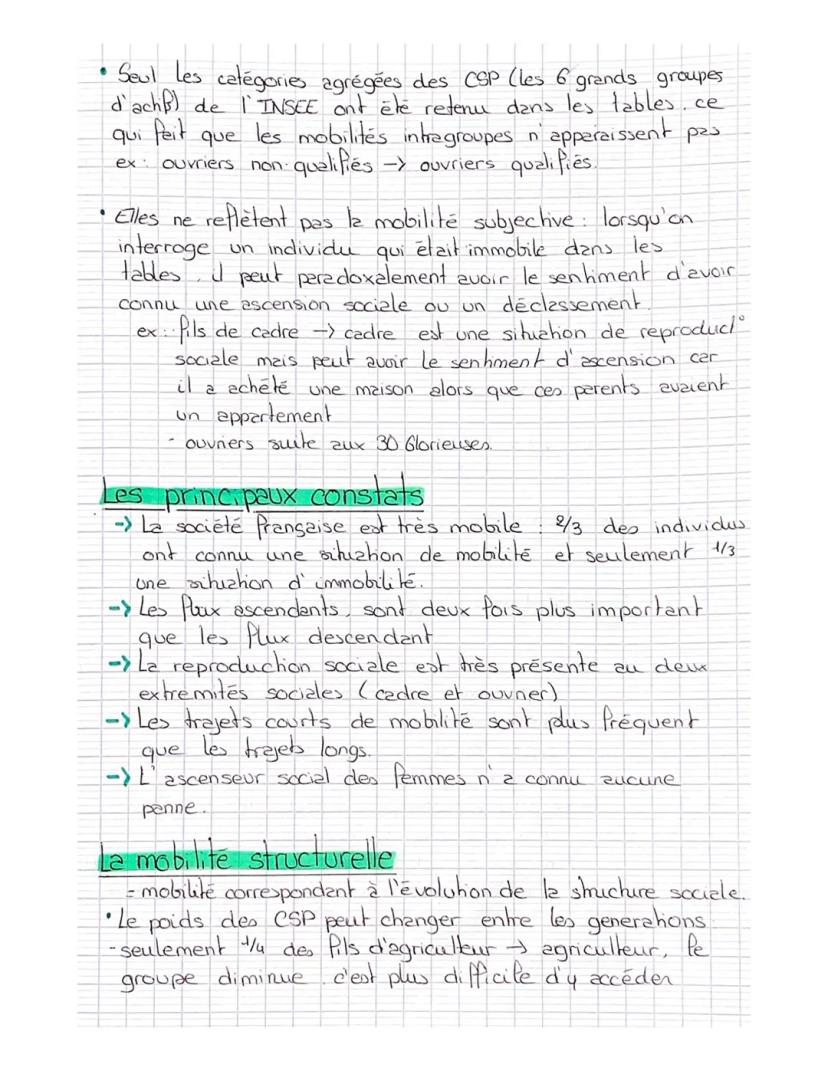 • Seul les catégories agrégées des CSP (les 6 grands groupes
d'achf) de l'INSEE ont été retenu dans les tables. ce
qui fait que les mobilités intragroupes n'apparaissent pas
ex: ouvriers non-qualifiés -> ouvriers qualifiés.
• Elles ne reflètent pas la mobilité subjective : lorsqu'on
interroge un individu qui était immobile dans les
tables, il peut paradoxalement avoir le sentiment d'avoir
connu une ascension sociale ou un déclassement.
ex: - fils de cadre -> cadre est une situation de reproduct°
sociale mais peut avoir le sentiment d'ascension car
il a acheté une maison alors que ces parents avaient
un appartement
- ouvriers suite aux 30 Glorieuses.
Les principaux constats
-> La société française est très mobile : 2/3 des individus
ont connu une situation de mobilité et seulement 1/3
une situation d'immobilité.
-> Les flux ascendants, sont deux fois plus important
que les flux descendant
-> La reproduction sociale est très présente au deux
extremités sociales (cadre et ouvrier)
-> Les trajets courts de mobilité sont plus fréquent
que les trajets longs.
-> L'ascenseur social des femmes n'a connu aucune
panne.
La mobilité structurelle
= mobilité correspondant à l'évolution de la structure sociale.
• Le poids des CSP peut changer entre les generations
- seulement 1/4 des fils d'agriculteur -> agriculteur, le
groupe diminue. c'est plus difficile d'y accéder